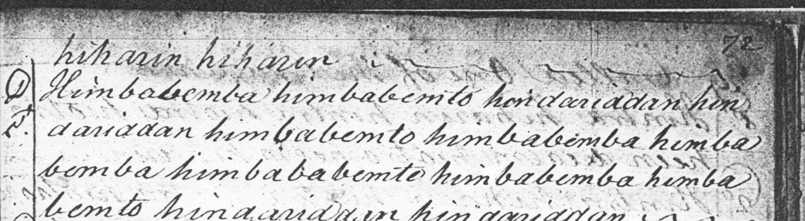 72
hiharin hiharin
Himbabemba himbabemto hindariddan hin
dariddan himbabemto himbabemba himba
bemba himbababemto himbabemba himba
bemto hindariddan hindariddan